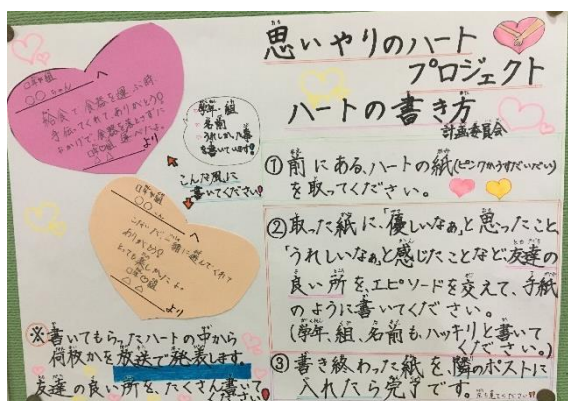 思いやりのハート
プロジェクト
ハートの書き方
計画委員会
①前にある、ハートの紙(ピンクかうすだいだい)
を取ってください。
②取った紙に、「優しいなぁ」と思ったこと、
「うれしいなぁ」と感じたことなど、友達の
良い所を、エピソードを交えて、手紙
のように書いてください。
(学年、組、名前も、ハッキリと書いて
ください。)
③書き終わった紙を、隣のポストに
入れたら完了です。
○年○組
○○ちゃんへ
給食で食器を運ぶ時、
手伝ってくれてありがとう!
おかげで食器を落とさずに
運べたよ。
より
学年、組
名前
うれしかった事
を書いています!
こんな風に
書いてください!
○年○組
○○へ
一緒に遊んでくれて
ありがとう!
とっても楽しかったよ。
○年○組
△△より
※書いてもらったハートの中から
何枚かを放送で発表します。
友達の良い所を、たくさん書いて
ください!